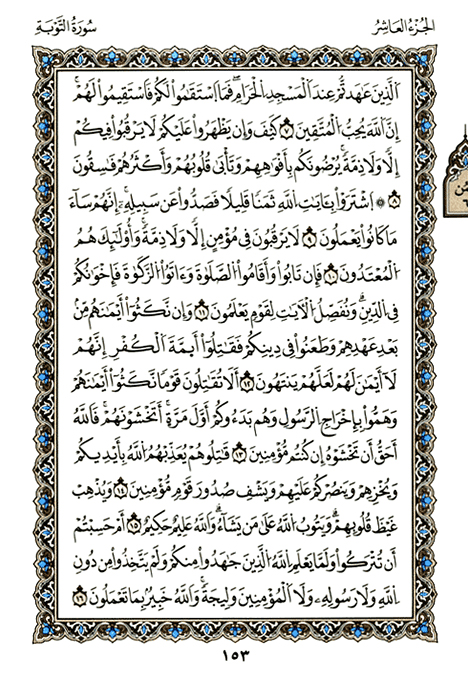 الجُزءُ العَاشِرُ
سُورَةُ التَّوْبَةِ
الَّذِينَ عَٰهَدتُّمْ عِندَ الْمَسْجِدِ الْحَرَامِ ۖ فَمَا اسْتَقَٰمُوا لَكُمْ فَاسْتَقِيمُوا لَهُمْ ۚ
إِنَّ اللَّهَ يُحِبُّ الْمُتَّقِينَ ٧ كَيْفَ وَإِن يَظْهَرُوا عَلَيْكُمْ لَا يَرْقُبُوا فِيكُمْ
إِلًّا وَلَا ذِمَّةً ۚ يُرْضُونَكُم بِأَفْوَٰهِهِمْ وَتَأْبَىٰ قُلُوبُهُمْ وَأَكْثَرُهُمْ فَٰسِقُونَ
٨ ۞ اشْتَرَوْا بِـَٔايَٰتِ اللَّهِ ثَمَنًا قَلِيلًا فَصَدُّوا عَن سَبِيلِهِ ۚ إِنَّهُمْ سَآءَ
مَا كَانُوا يَعْمَلُونَ ٩ لَا يَرْقُبُونَ فِى مُؤْمِنٍ إِلًّا وَلَا ذِمَّةً ۚ وَأُولَٰٓئِكَ هُمُ
الْمُعْتَدُونَ ١٠ فَإِن تَابُوا وَأَقَامُوا الصَّلَوٰةَ وَءَاتَوُا الزَّكَوٰةَ فَإِخْوَٰنُكُمْ
فِى الدِّينِ ۗ وَنُفَصِّلُ الْءَايَٰتِ لِقَوْمٍ يَعْلَمُونَ ١١ وَإِن نَّكَثُوٓا أَيْمَٰنَهُم مِّنۢ
بَعْدِ عَهْدِهِمْ وَطَعَنُوا فِى دِينِكُمْ فَقَٰتِلُوٓا أَئِمَّةَ الْكُفْرِ ۙ إِنَّهُمْ
لَآ أَيْمَٰنَ لَهُمْ لَعَلَّهُمْ يَنتَهُونَ ١٢ أَلَا تُقَٰتِلُونَ قَوْمًا نَّكَثُوٓا أَيْمَٰنَهُمْ
وَهَمُّوا بِإِخْرَاجِ الرَّسُولِ وَهُم بَدَءُوكُمْ أَوَّلَ مَرَّةٍ ۚ أَتَخْشَوْنَهُمْ ۚ فَاللَّهُ
أَحَقُّ أَن تَخْشَوْهُ إِن كُنتُم مُّؤْمِنِينَ ١٣ قَٰتِلُوهُمْ يُعَذِّبْهُمُ اللَّهُ بِأَيْدِيكُمْ
وَيُخْزِهِمْ وَيَنصُرْكُمْ عَلَيْهِمْ وَيَشْفِ صُدُورَ قَوْمٍ مُّؤْمِنِينَ ١٤ وَيُذْهِبْ
غَيْظَ قُلُوبِهِمْ ۗ وَيَتُوبُ اللَّهُ عَلَىٰ مَن يَشَآءُ ۗ وَاللَّهُ عَلِيمٌ حَكِيمٌ ١٥ أَمْ حَسِبْتُمْ
أَن تُتْرَكُوا وَلَمَّا يَعْلَمِ اللَّهُ الَّذِينَ جَٰهَدُوا مِنكُمْ وَلَمْ يَتَّخِذُوا مِن دُونِ
اللَّهِ وَلَا رَسُولِهِ وَلَا الْمُؤْمِنِينَ وَلِيجَةً ۚ وَاللَّهُ خَبِيرٌۢ بِمَا تَعْمَلُونَ ١٦
١٥٣